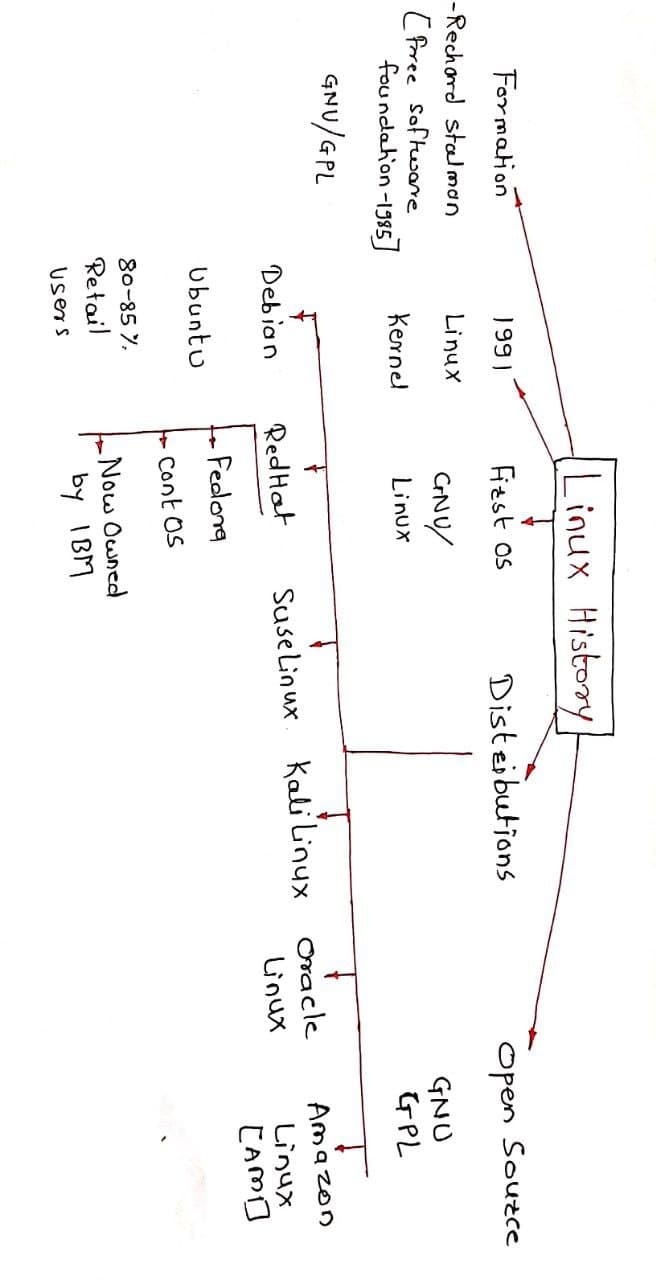 Linux History
Formation
-Rechard stalman
[free software
foundation-1985]
GNU/GPL
1991
Linux
Kernel
First OS
GNU/
Linux
Distributions
Open Source
GNU
GPL
Debian
Ubuntu
80-85%
Retail
users
RedHat
Fedora
Cont OS
Now Owned
by IBM
SuseLinux
Kali Linux
Oracle
Linux
Amazon
Linux
[AMI]